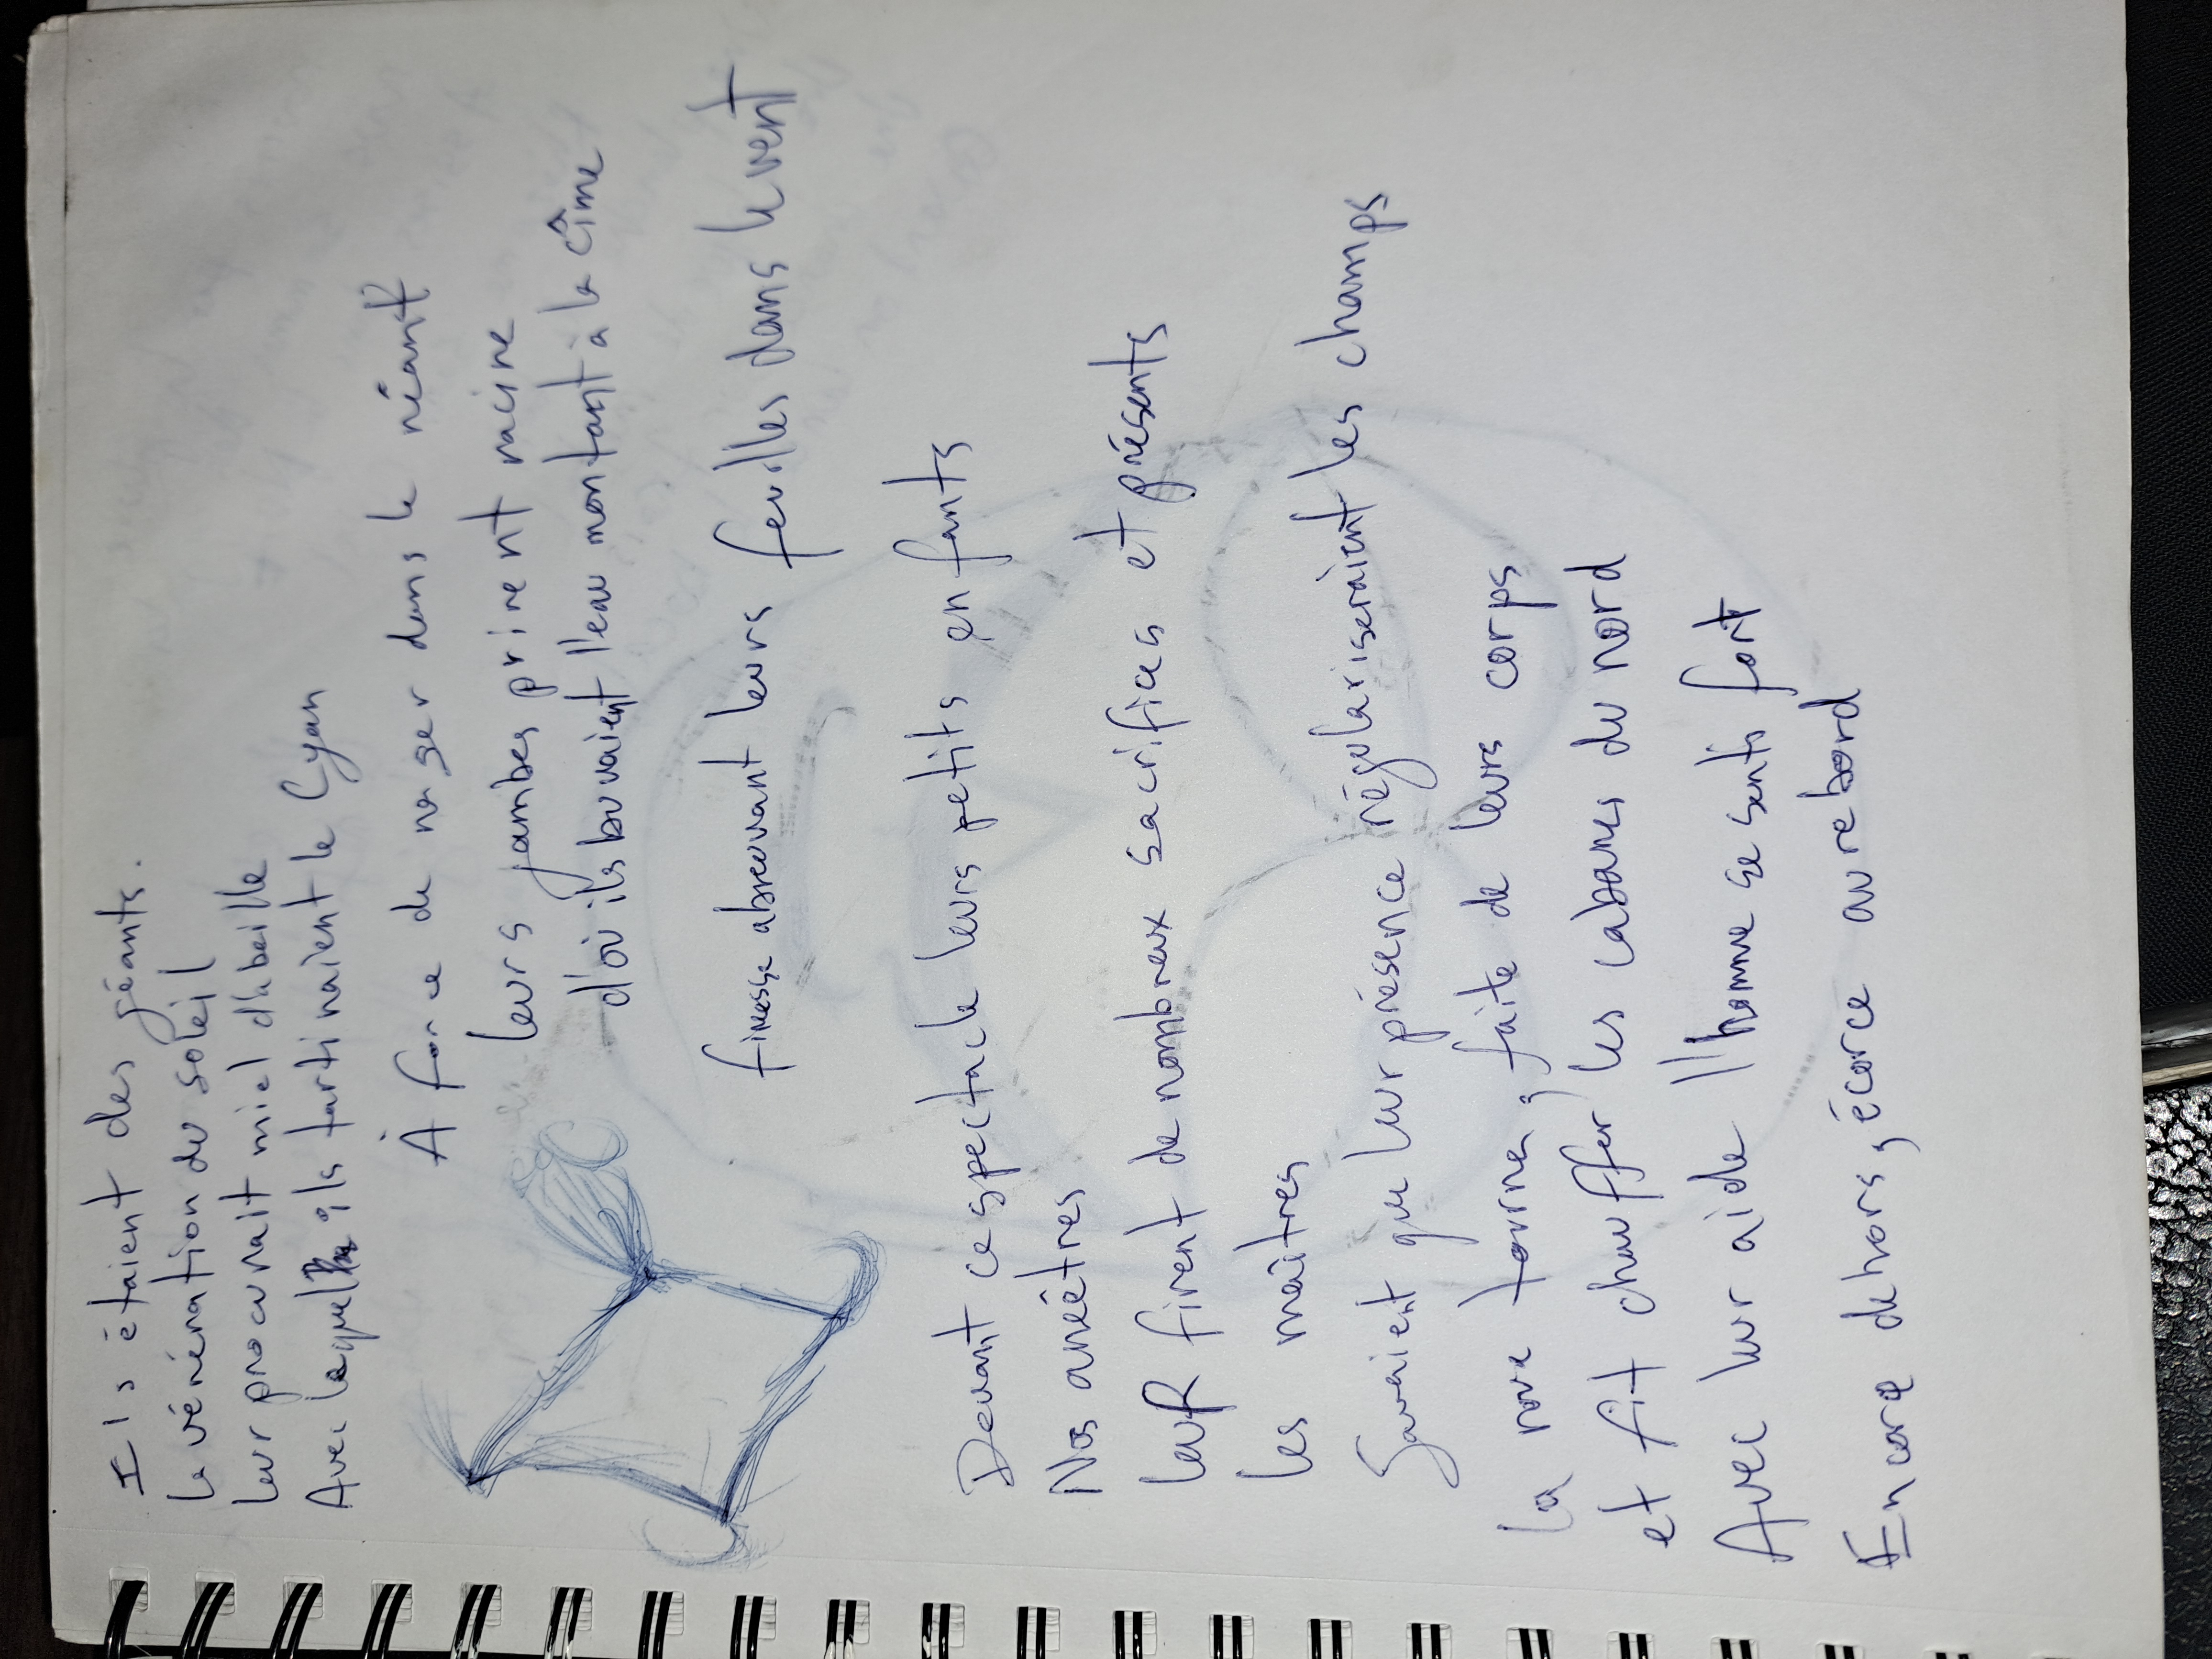 Ils étaient des géants.
la vénération du soleil
leur procurait miel d'abeille
Avec laquelle ils tartinaient le Cyan
À force de nager dans le néant
leurs jambes prirent racine
d'où ils buvaient l'eau montant à la cîme
finesse abreuvant leurs feuilles dans le vent
Devant ce spectacle leurs petits enfants
Nos ancêtres
leuR firent de nombreux sacrifices et présents
les maîtres
Savaient que leur présence régulariseraient les champs
la roue tourne, faite de leurs corps
et fit chauffer les cabanes du nord
Avec leur aide l'homme se sents fort
Encore dehors, écorce au rebord